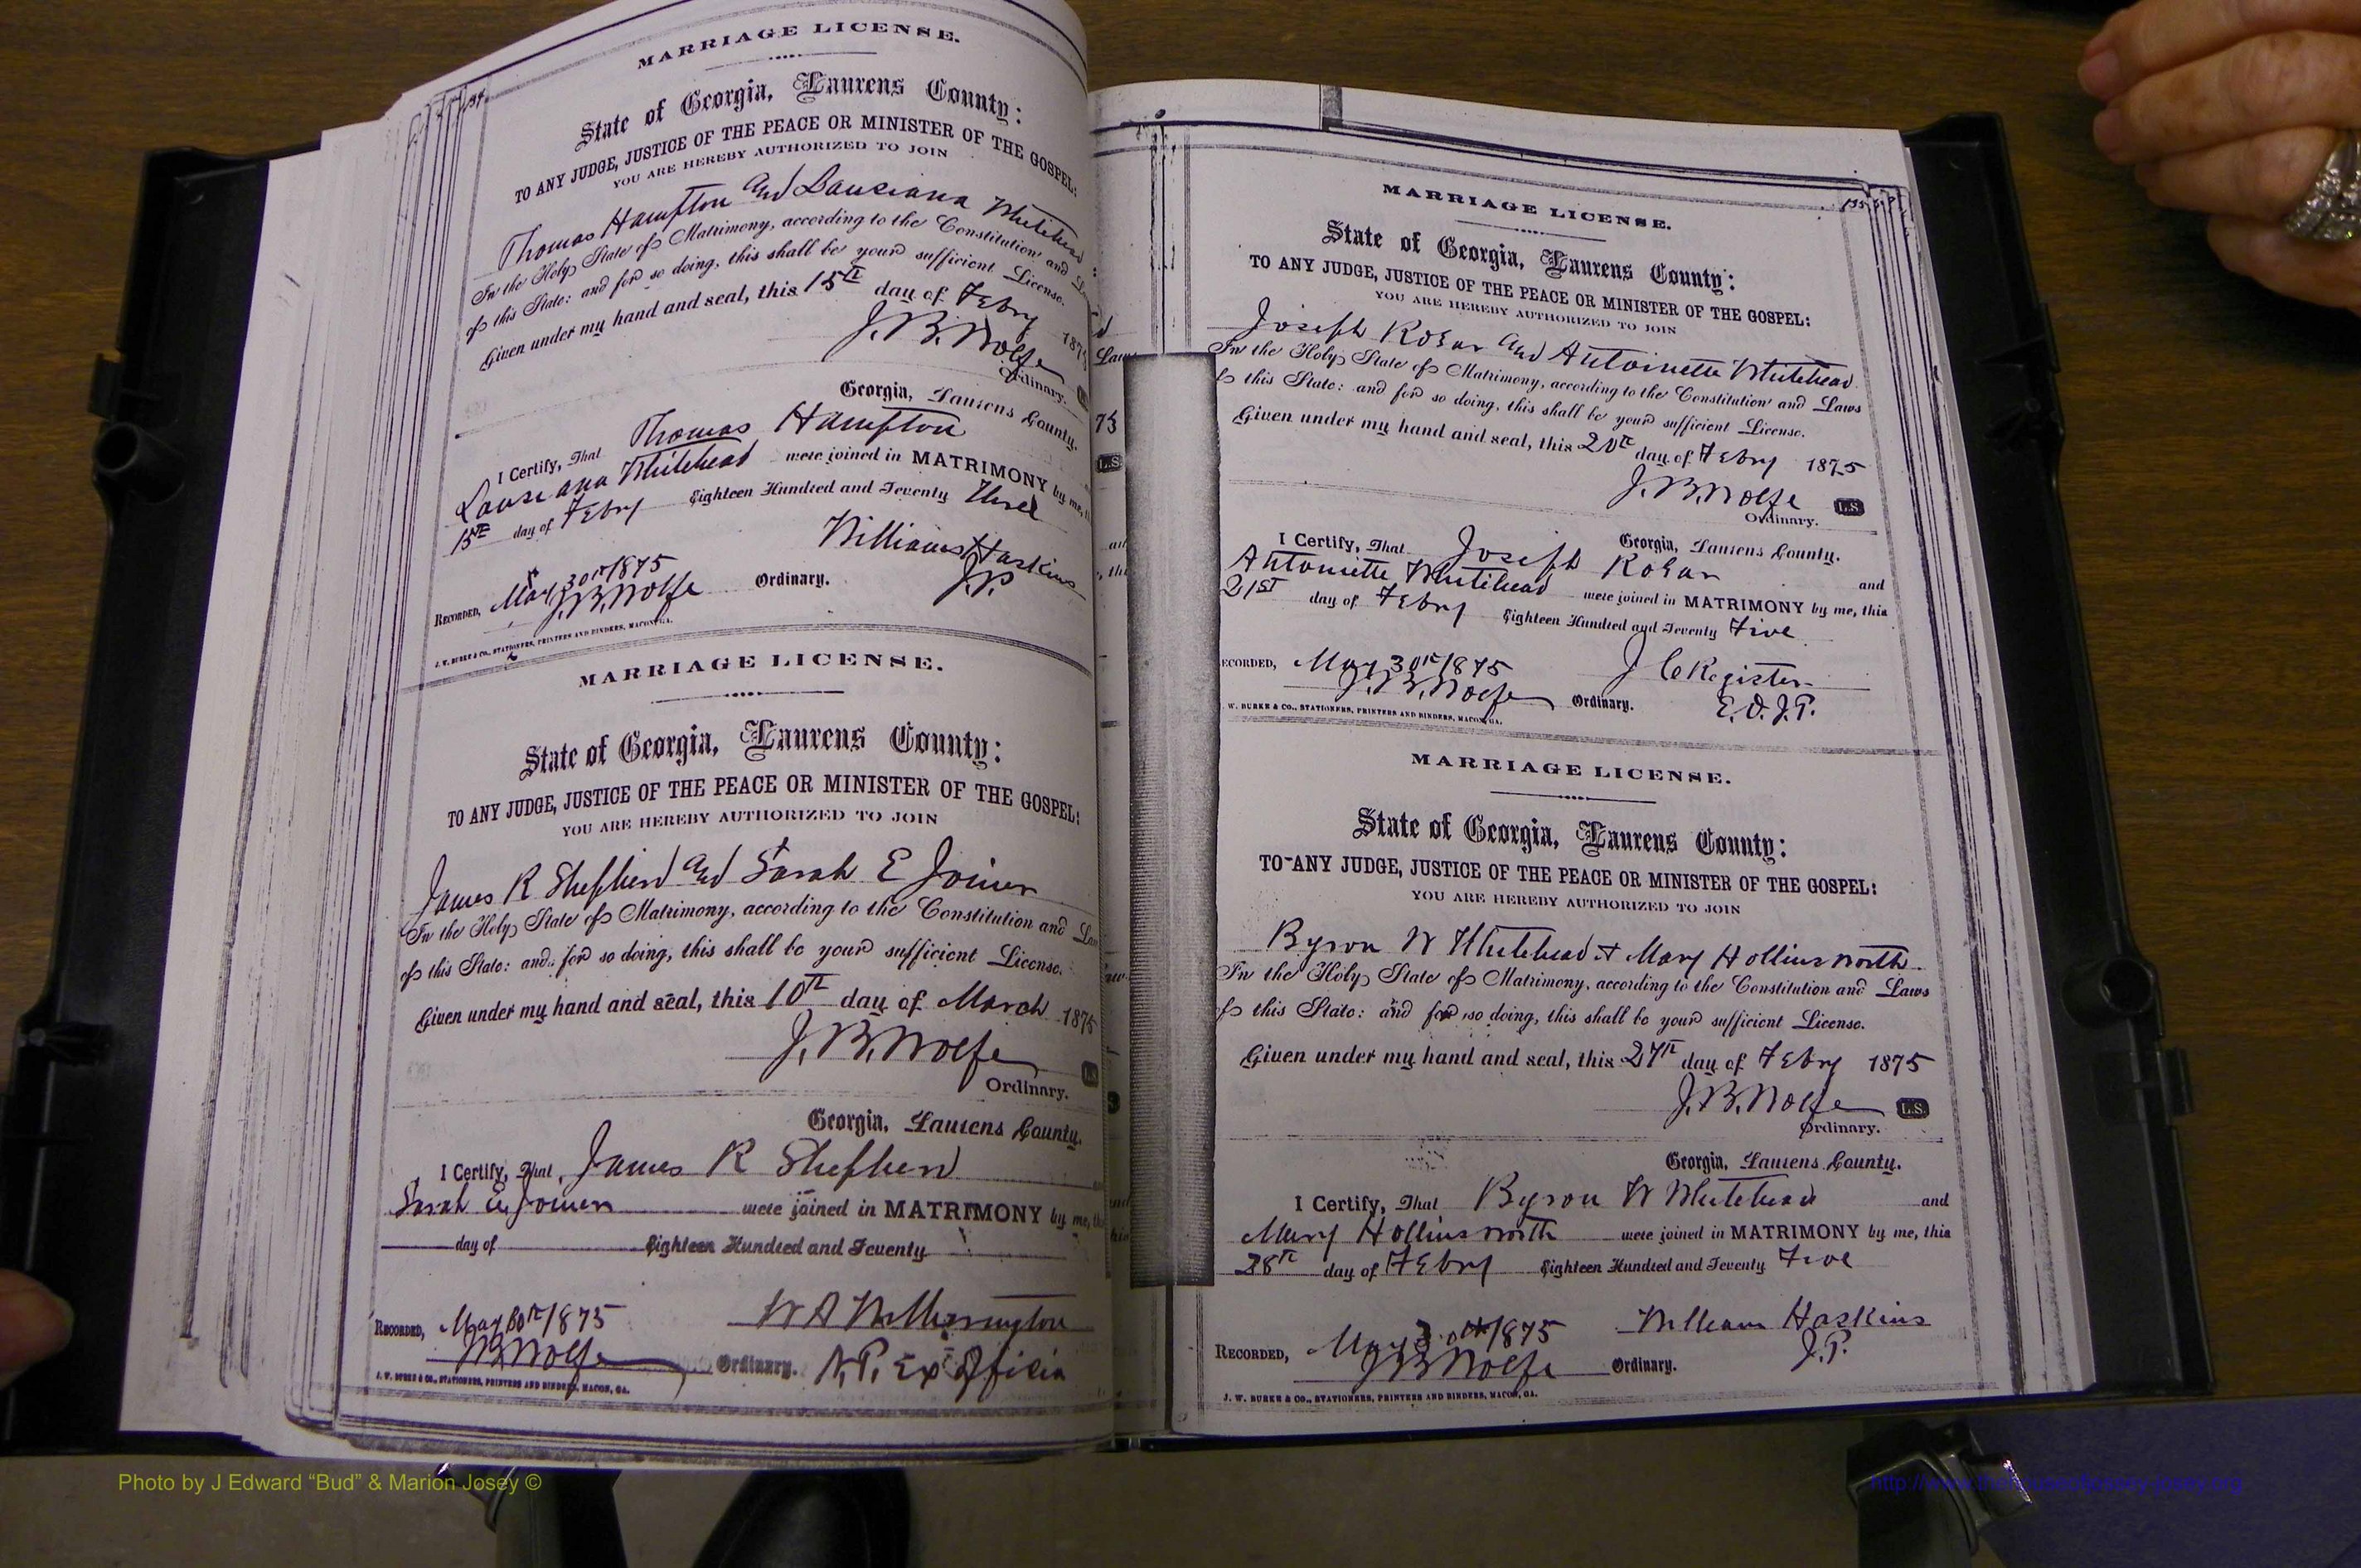 134
MARRIAGE LICENSE.
State of Georgia, Laurens County:
TO ANY JUDGE, JUSTICE OF THE PEACE OR MINISTER OF THE GOSPEL:
YOU ARE HEREBY AUTHORIZED TO JOIN
Thomas Hampton and Lausiana Whitehead
In the Holy State of Matrimony, according to the Constitution and
of this State: and for so doing, this shall be your sufficient License.
Given under my hand and seal, this 15th day of Febry 187
J. B. Wolfe
Ordinary.
Georgia, Laurens County.
I Certify, That Thomas Hampton
Lausiana Whitehead were joined in MATRIMONY by me,
15th day of Febry Eighteen Hundred and Seventy Three
William Haskins
J.P.
RECORDED, May 30th 1875
J. B. Wolfe Ordinary.
J. W. BURKE & CO., STATIONERS, PRINTERS AND BINDERS, MACON, GA.
MARRIAGE LICENSE.
State of Georgia, Laurens County:
TO ANY JUDGE, JUSTICE OF THE PEACE OR MINISTER OF THE GOSPEL:
YOU ARE HEREBY AUTHORIZED TO JOIN
James R Shepherd and Sarah E Joiner
In the Holy State of Matrimony, according to the Constitution and
of this State: and for so doing, this shall be your sufficient License.
Given under my hand and seal, this 10th day of March 1875
J. B. Wolfe
L.S.
Ordinary.
Georgia, Laurens County.
I Certify, That James R Shepherd
Sarah E Joiner were joined in MATRIMONY by me,
day of Eighteen Hundred and Seventy
W A
RECORDED, May 30th 1875
J B Wolfe Ordinary. N.P. Ex Officio
J. W. BURKE & CO., STATIONERS, PRINTERS AND BINDERS, MACON, GA.
Laws
73
L.S.
135
MARRIAGE LICENSE.
State of Georgia, Laurens County:
TO ANY JUDGE, JUSTICE OF THE PEACE OR MINISTER OF THE GOSPEL:
YOU ARE HEREBY AUTHORIZED TO JOIN
Joseph Kozar and Antoinette Whitehead
In the Holy State of Matrimony, according to the Constitution and Laws
of this State: and for so doing, this shall be your sufficient License.
Given under my hand and seal, this 20th day of Febry 1875
J. B. Wolfe L.S.
Ordinary.
Georgia, Laurens County.
I Certify, That Joseph Kozar and
Antoinette Whitehead were joined in MATRIMONY by me, this
21st day of Febry Eighteen Hundred and Seventy Five
RECORDED, May 30th 1875 J C Register
J. B. Wolfe Ordinary. E.O.J.P.
J. W. BURKE & CO., STATIONERS, PRINTERS AND BINDERS, MACON, GA.
MARRIAGE LICENSE.
State of Georgia, Laurens County:
TO ANY JUDGE, JUSTICE OF THE PEACE OR MINISTER OF THE GOSPEL:
YOU ARE HEREBY AUTHORIZED TO JOIN
Byron W Whitehead & Mary Hollinsworth
In the Holy State of Matrimony, according to the Constitution and Laws
of this State: and for so doing, this shall be your sufficient License.
Given under my hand and seal, this 27th day of Febry 1875
J. B. Wolfe L.S.
Ordinary.
Georgia, Laurens County.
I Certify, That Byron W Whitehead and
Mary Hollinsworth were joined in MATRIMONY by me, this
28th day of Febry Eighteen Hundred and Seventy Five
William Haskins
RECORDED, May 30th 1875 J.P.
J B Wolfe Ordinary.
J. W. BURKE & CO., STATIONERS, PRINTERS AND BINDERS, MACON, GA.
Photo by J Edward “Bud” & Marion Josey ©